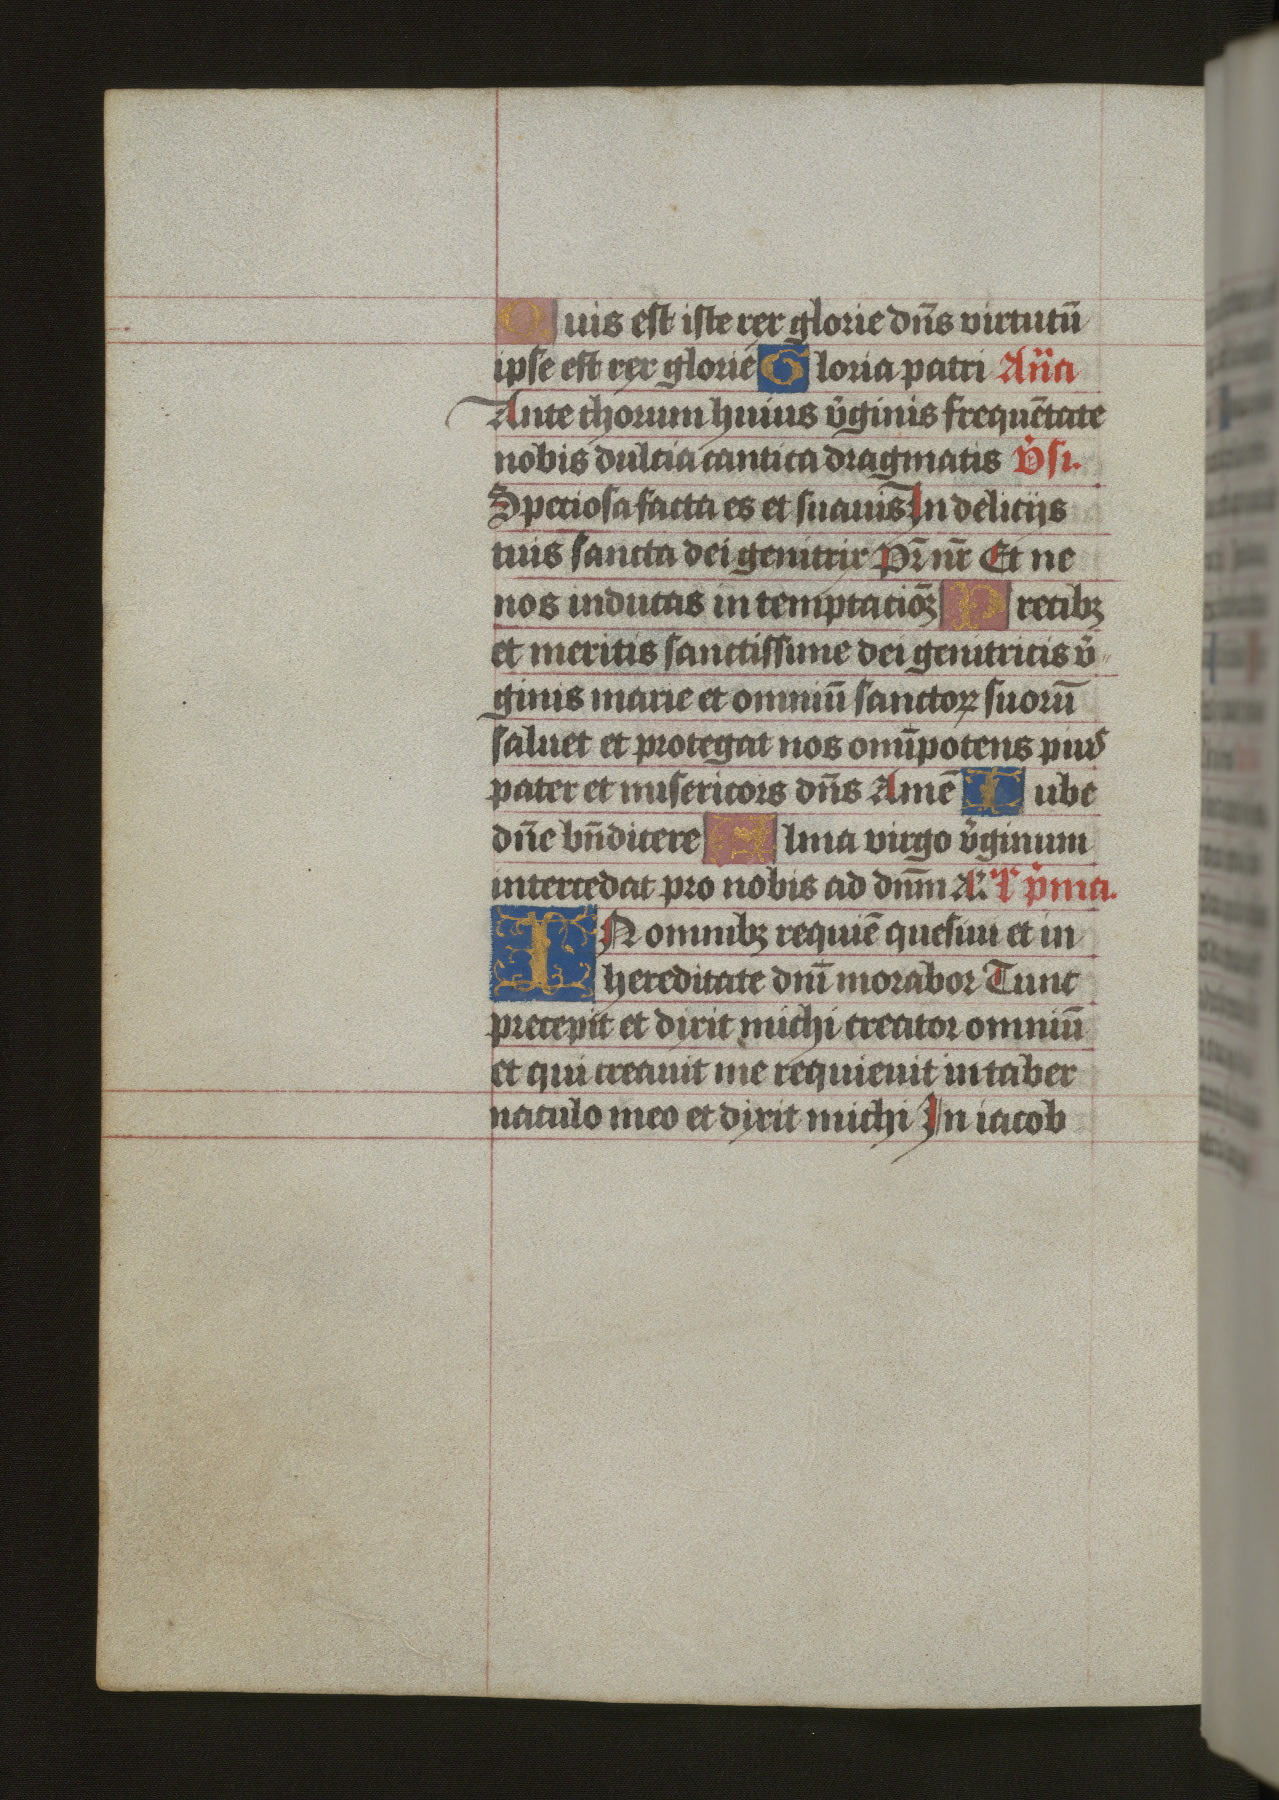 Quis est iste rex glorie dn̄s virtutū
ipse est rex glorie Gloria patri An̄a
Ante thorum huius v̾ginis frequētate
nobis dulcia cantica dragmatis v̾sı.
Speciosa facta es et suauis In delicijs
tuis sancta dei genitrix Pr̄ nr̄ Et ne
nos inducas in temptacioꝫ Precibꝫ
et meritis sanctissime dei genitricis v̾-
ginis marie et omniū sanctoꝝ suorū
saluet et protegat nos omīpotens pius
pater et misericors dn̄s Amē Iube
dn̄e bn̄dicere Alma virgo v̾ginum
intercedat pro nobis ad dnm̄ A. L̾ p̾ma.
IN omnibꝫ requiē quesiui et in
hereditate dnī morabor Tunc
precepit et dixit michi creator omniū
et qui creauit me requieuit in taber
naculo meo et dixit michi In iacob